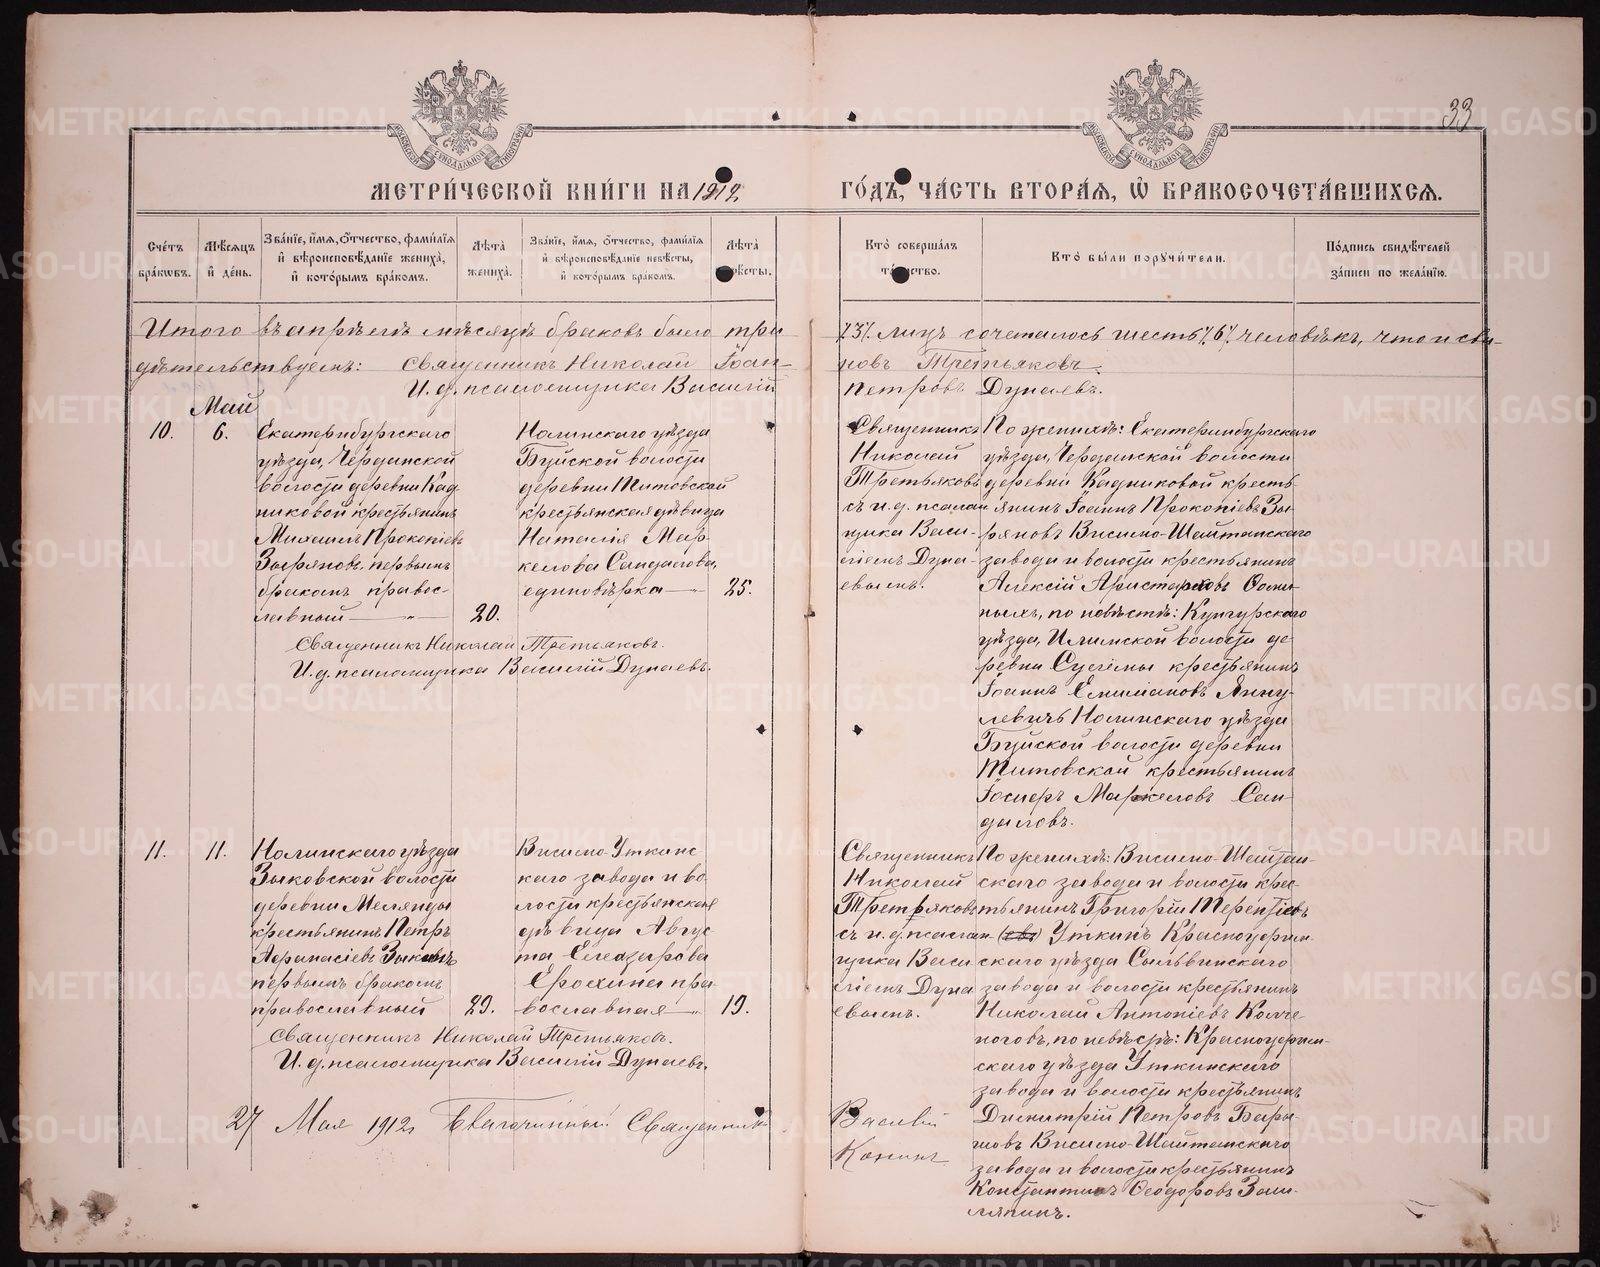 33
МЕТРИ́ЧЕСКОЙ КНИ́ГИ НА 1912 ГО́ДЪ, ЧА́СТЬ ВТОРА́Я, Ѿ БРАКОСОЧЕТА́ВШИХСЯ.
Сче́тъ бра́кѡвъ.
Мѣ́сяцъ и҆ де́нь.
Зва́нїе, и҆́мя, ѻ҆́тчество, фами́лїя и҆ вѣроисповѣ́данїе жениха̀, и҆ кото́рымъ бра́комъ.
Лѣ́та жениха̀.
Зва́нїе, и҆́мя, ѻ҆́тчество, фами́лїя и҆ вѣроисповѣ́данїе невѣ́сты, и҆ кото́рымъ бра́комъ.
Лѣ́та
Кто̀ соверша́лъ
Кто̀ бы́ли порꙋчи́тели.
По́дпись свидѣ́телей за́писи по жела́нїю.
Итого въ апрѣлѣ мѣсяцѣ браковъ было три
„3“ лицъ сочеталось шесть „6“ человѣкъ, что и сви-
дѣтельствуемъ: Священникъ Николай Іоан-
новъ Третьяковъ.
И. д. псаломщика Василій
Петровъ Дунаевъ.
Май
10.
6.
Екатеринбургскаго
уѣзда,
волости деревни Кад-
никовой крестьянинъ
Михаилъ Прокопіевъ
Зыряновъ, первымъ
бракомъ правос-
лавный
20.
Нолинскаго уѣзда
Буйской волости
деревни Титовской
крестьянская дѣвица
Наталія Мар-
келова Сандалова,
единовѣрка
25.
Священникъ
Николай
Третьяковъ
съ и. д. псалом-
щика Васи-
ліемъ Дуна-
евымъ.
По женихѣ: Екатеринбургскаго
уѣзда, волости
деревни Кадниковой кресть-
янинъ Іоаннъ Прокопіевъ Зы-
ряновъ Висимо-Шайтанскаго
завода и волости крестьянинъ
Алексій Аристарховъ
по невѣстѣ: Кунгурскаго
уѣзда, Илимской волости де-
ревни крестьянинъ
Іоаннъ
Нолинскаго уѣзда
Буйской волости деревни
Титовской крестьянинъ
Іосифъ Маркеловъ Сан-
даловъ.
Священникъ Николай Третьяковъ.
И. д. псаломщика Василій Дунаевъ.
11.
11.
Нолинскаго уѣзда
Зыковской волости
деревни Мелянды
крестьянинъ Петръ
Аѳанасіевъ Зыковъ
первымъ бракомъ
православный
29.
Висимо-Уткинс-
каго завода и во-
лости крестьянская
дѣвица Авгус-
та Елеазарова
Ерохина пра-
вославная
19.
Священникъ
Николай
Третьяковъ
съ и. д. псалом-
щика Васи-
ліемъ Дуна-
евымъ.
По женихѣ: Висимо-Шайтан-
скаго завода и волости крес-
тьянинъ Григорій Терентіевъ
Уткинъ Красноуфим-
скаго уѣзда Сылвинскаго
завода и волости крестьянинъ
Николай Антоніевъ Колче-
ноговъ, по невѣстѣ: Красноуфим-
скаго уѣзда Уткинскаго
завода и волости крестьянинъ
Димитрій Петровъ Бары-
шовъ Висимо-Шайтанскаго
завода и волости крестьянинъ
Константинъ Ѳеодоровъ
Священникъ Николай Третьяковъ.
И. д. псаломщика Василій Дунаевъ.
27 Мая 1912 г. Благочинный Священникъ
Василій